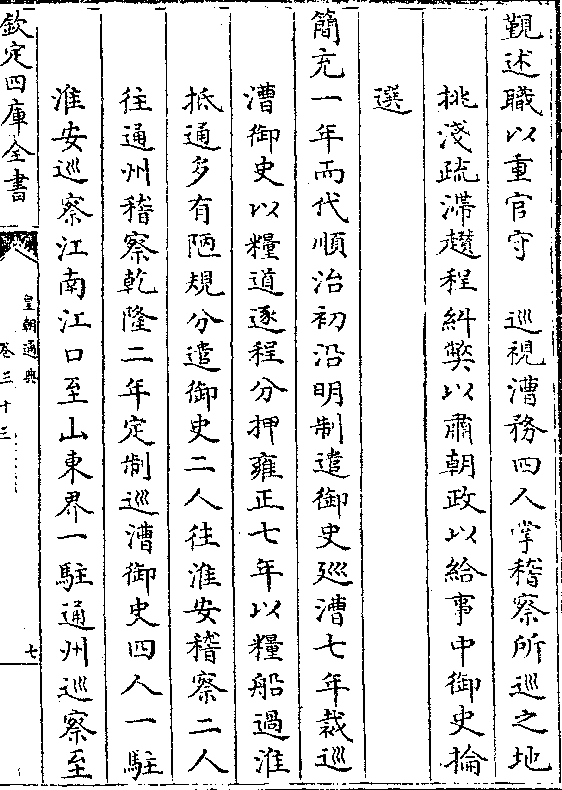 覲述職以重官守　巡視漕務四人掌稽察所巡之地
挑淺疏滯趲程糾弊以肅朝政以給事中御史掄
選
簡充一年而代順治初沿明制遣御史巡漕七年裁巡
漕御史以糧道逐程分押雍正七年以糧船過淮
抵通多有陋規分遣御史二人往淮安稽察二人
往通州稽察乾隆二年定制巡漕御史四人一駐
淮安巡察江南江口至山東界一駐通州巡察至
欽定四庫全書
皇朝通典
卷三十三
七